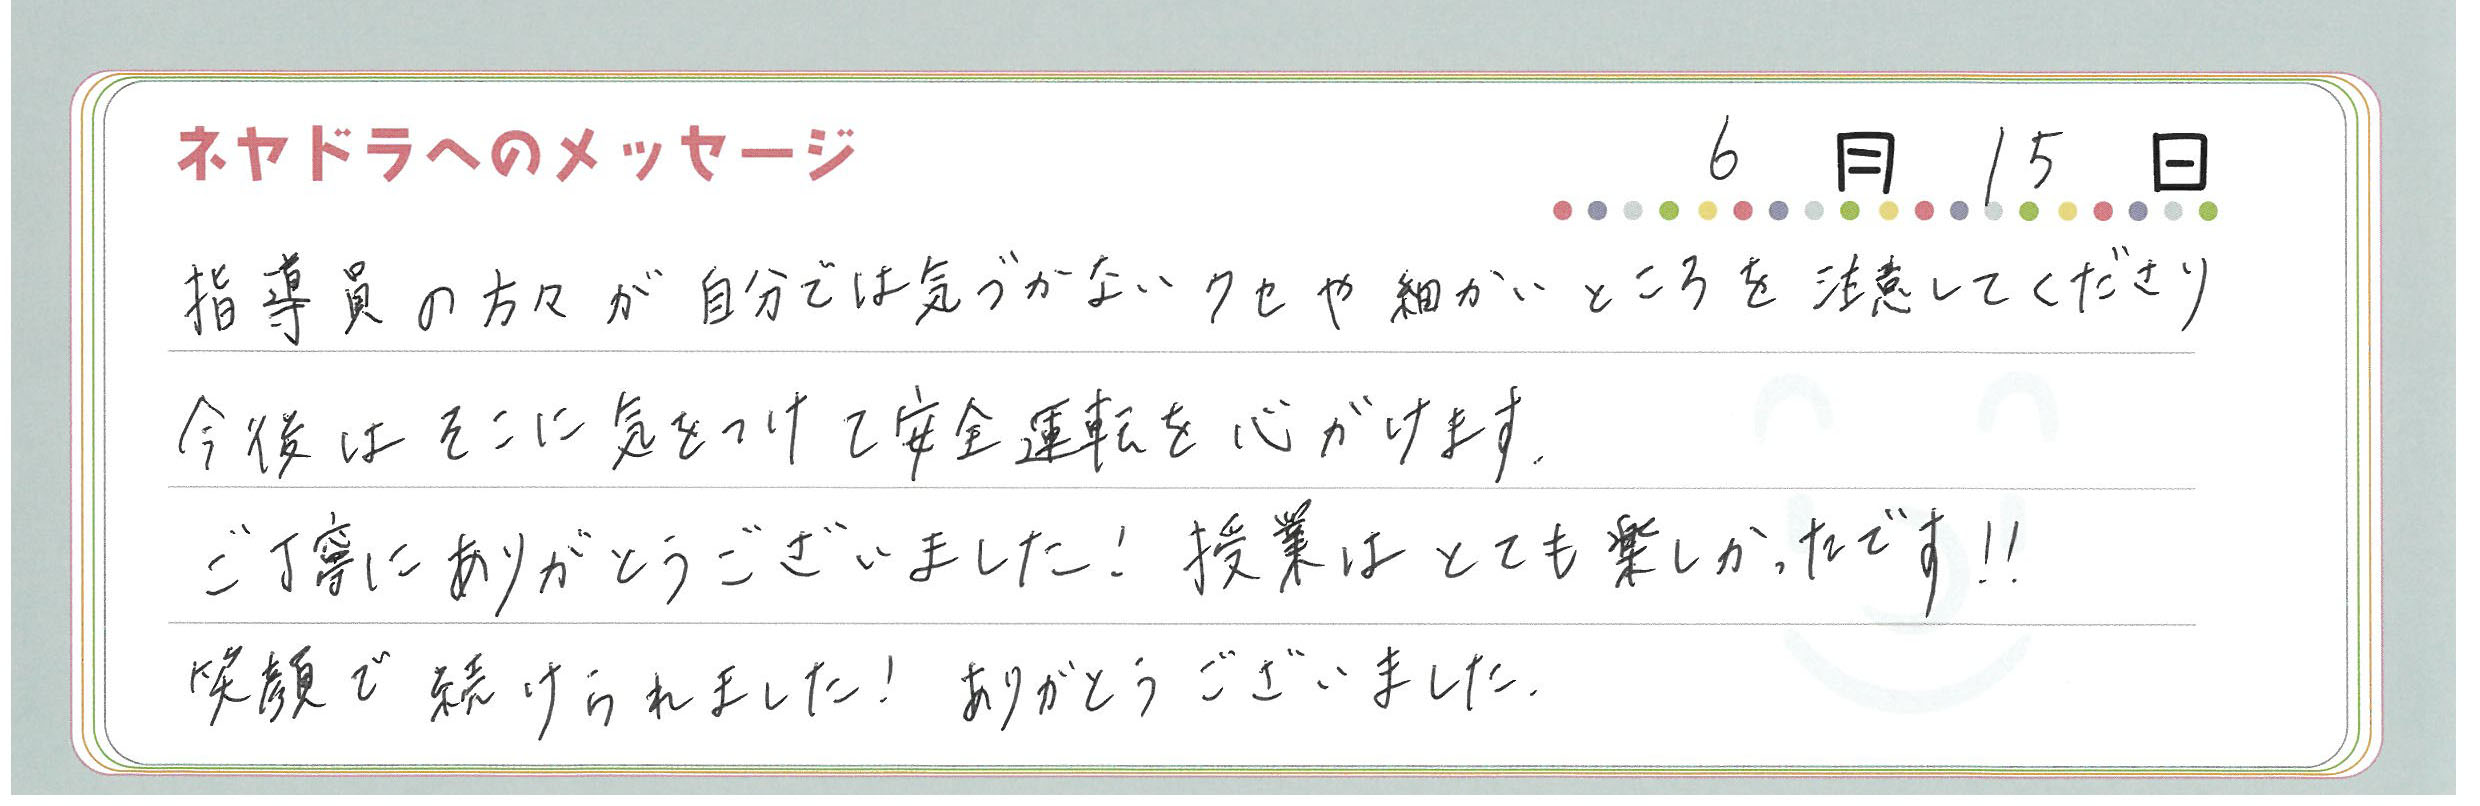 ネヤドラへのメッセージ
6月15日
指導員の方々が自分では気づかないクセや細かいところを注意してくださり
今後はそこに気をつけて安全運転を心がけます.
ご丁寧にありがとうございました! 授業はとても楽しかったです!!
笑顔で続けられました! ありがとうございました.